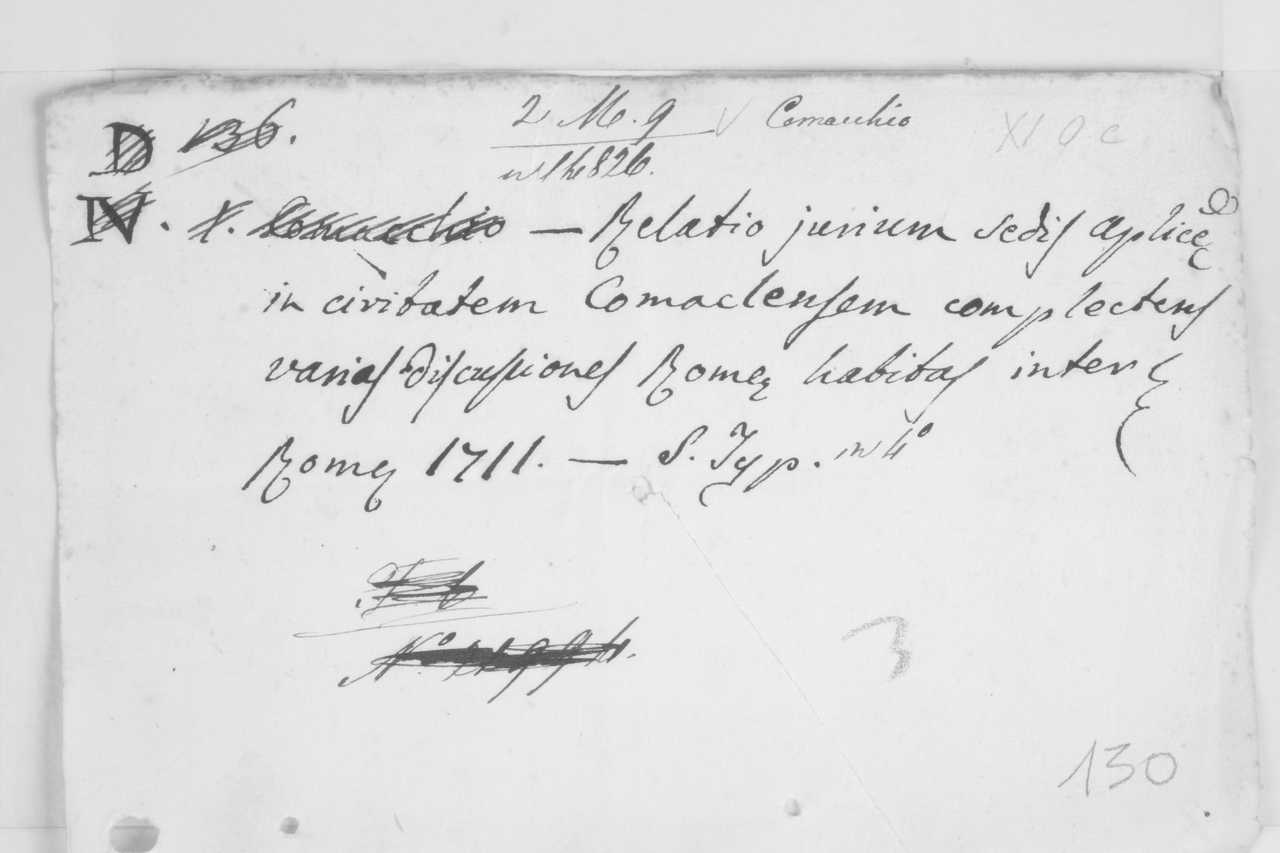 D 136. 2 M. 9 V Comacchio XI O c
n 14826.
IV. X. Comacchio — Relatio jurium sedis aplicę
in civitatem Comaclensem complectens
varias discussiones Romę habitas inter &
Romę 1711. — S. Typ. in 4°
N°. 11994.
3
130